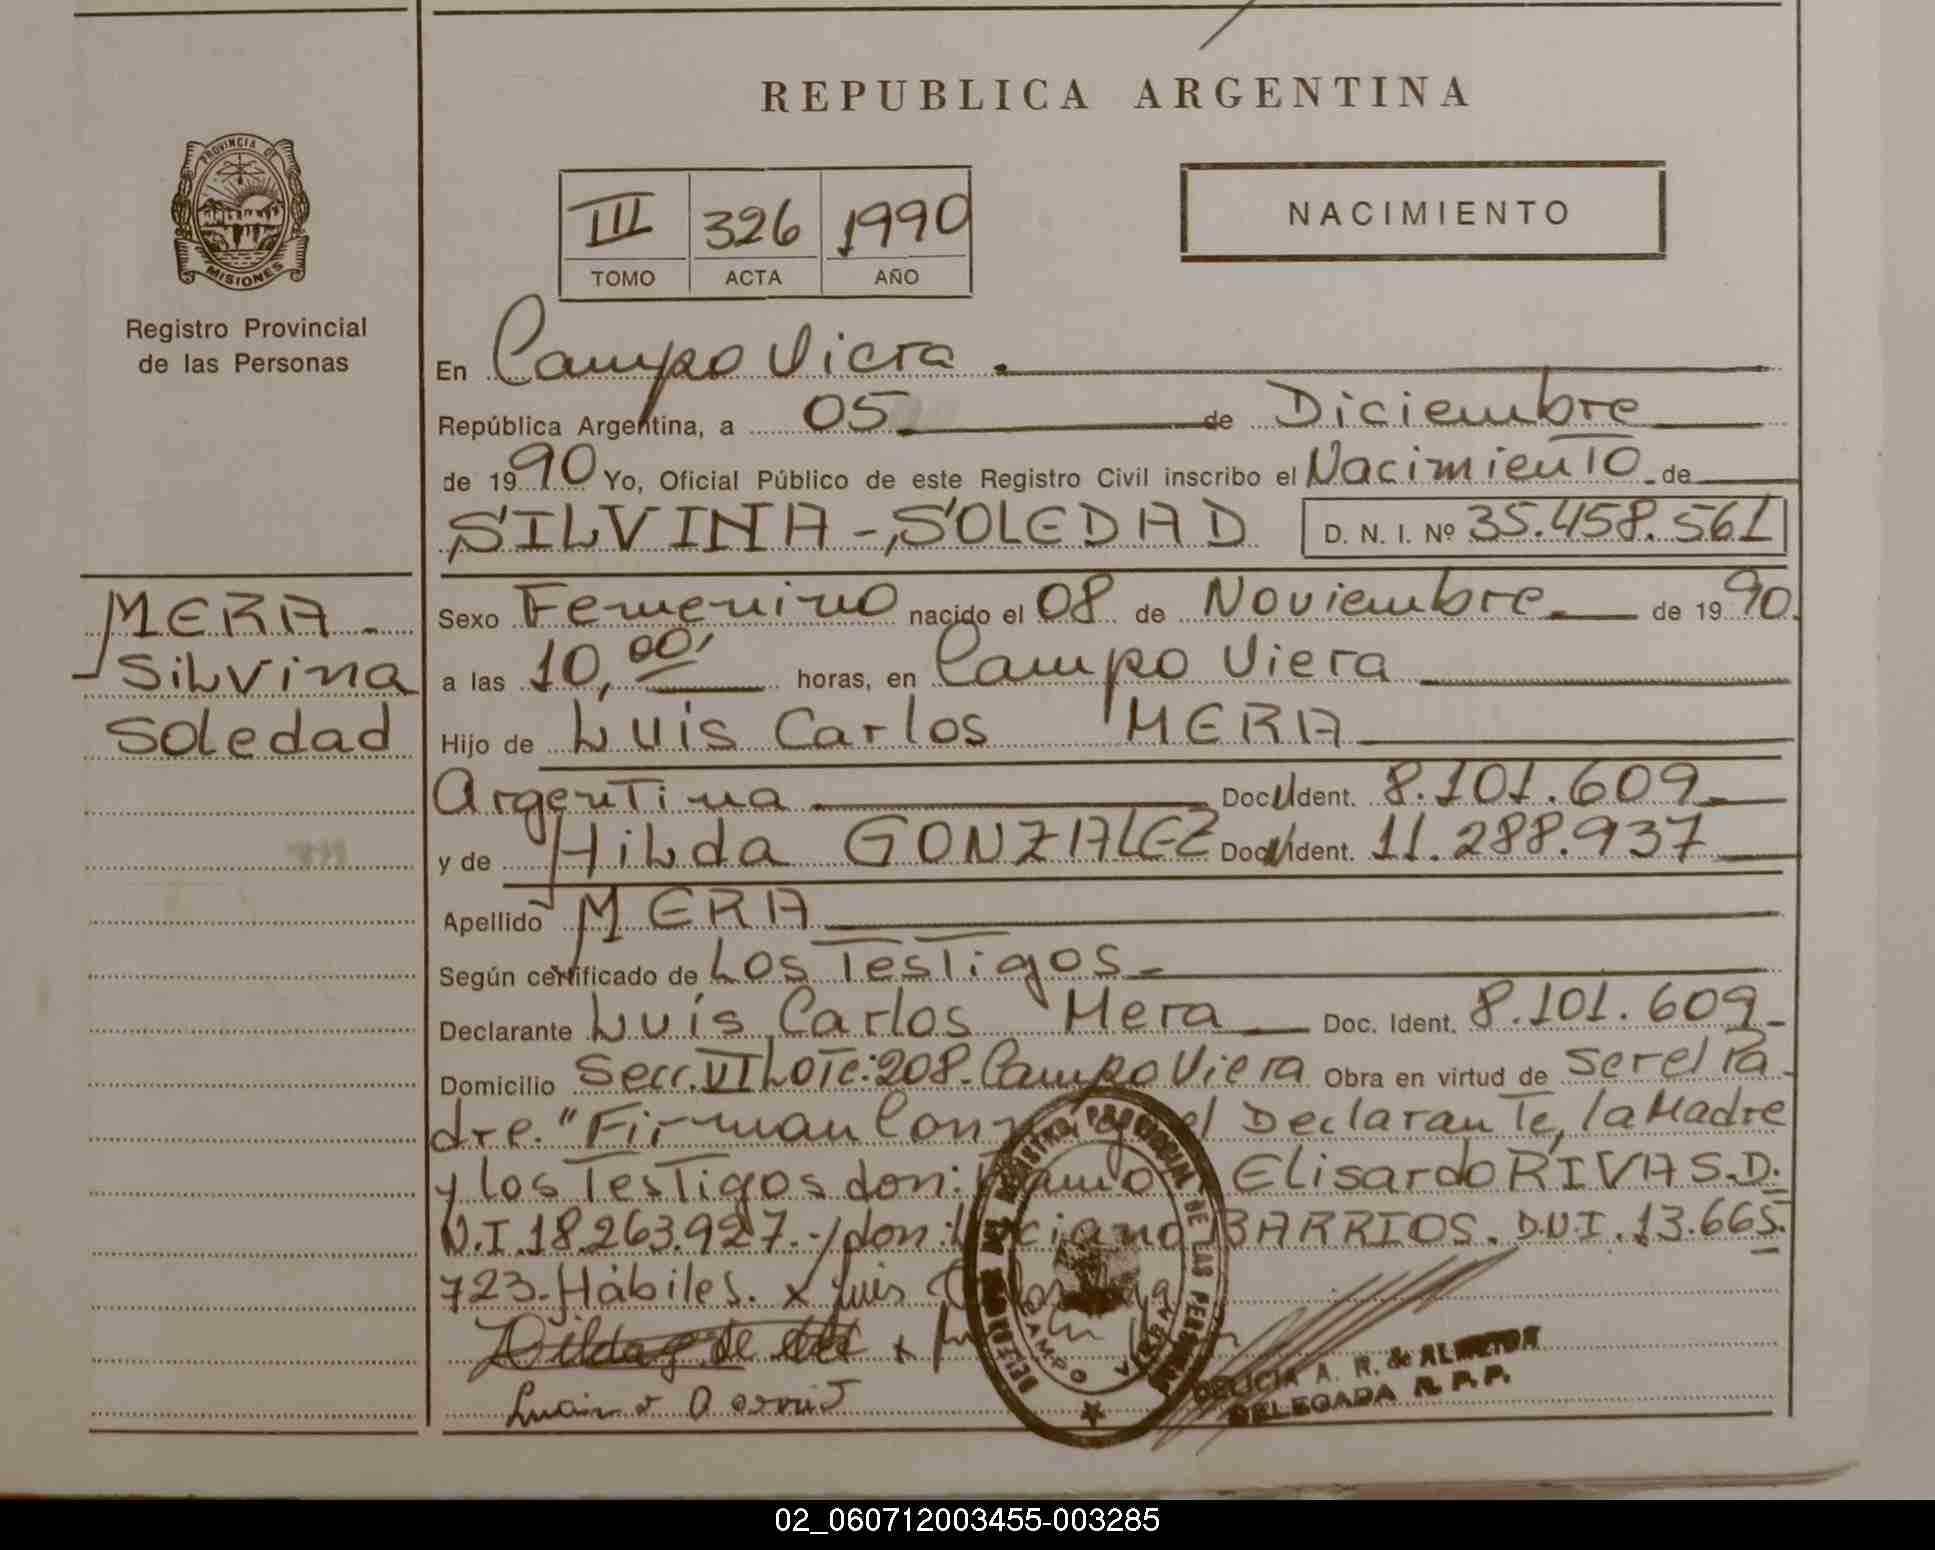 REPUBLICA ARGENTINA
PROVINCIA DE
MISIONES
Registro Provincial
de las Personas
III 326 1990
TOMO ACTA AÑO
NACIMIENTO
En Campo Viera
República Argentina, a 05 de Diciembre
de 1990 Yo, Oficial Público de este Registro Civil inscribo el Nacimiento de
SILVINA - SOLEDAD D. N. I. Nº 35.458.561
MERA
Silvina
Soledad
Sexo Femenino nacido el 08 de Noviembre de 1990.
a las 10,00 horas, en Campo Viera
Hijo de Luis Carlos MERA
Argentina Doc. Ident. 8.101.609
y de Hilda GONZALEZ Doc. Ident. 11.288.937
Apellido MERA
Según certificado de Los Testigos
Declarante Luis Carlos Mera Doc. Ident. 8.101.609
Domicilio Secc. VI Lote: 208. Campo Viera Obra en virtud de ser el Pa
dre. "Firman el Declarante, la Madre
y los Testigos don: Elisardo RIVAS. D.
N.I. 18.263.927.-/don: BARRIOS. D.N.I. 13.665.
723. Hábiles. x Luis
REGISTRO PROVINCIAL DE LAS PERSONAS
CAMPO VIERA
A. R. de
DELEGADA R. P. P.
02_060712003455-003285